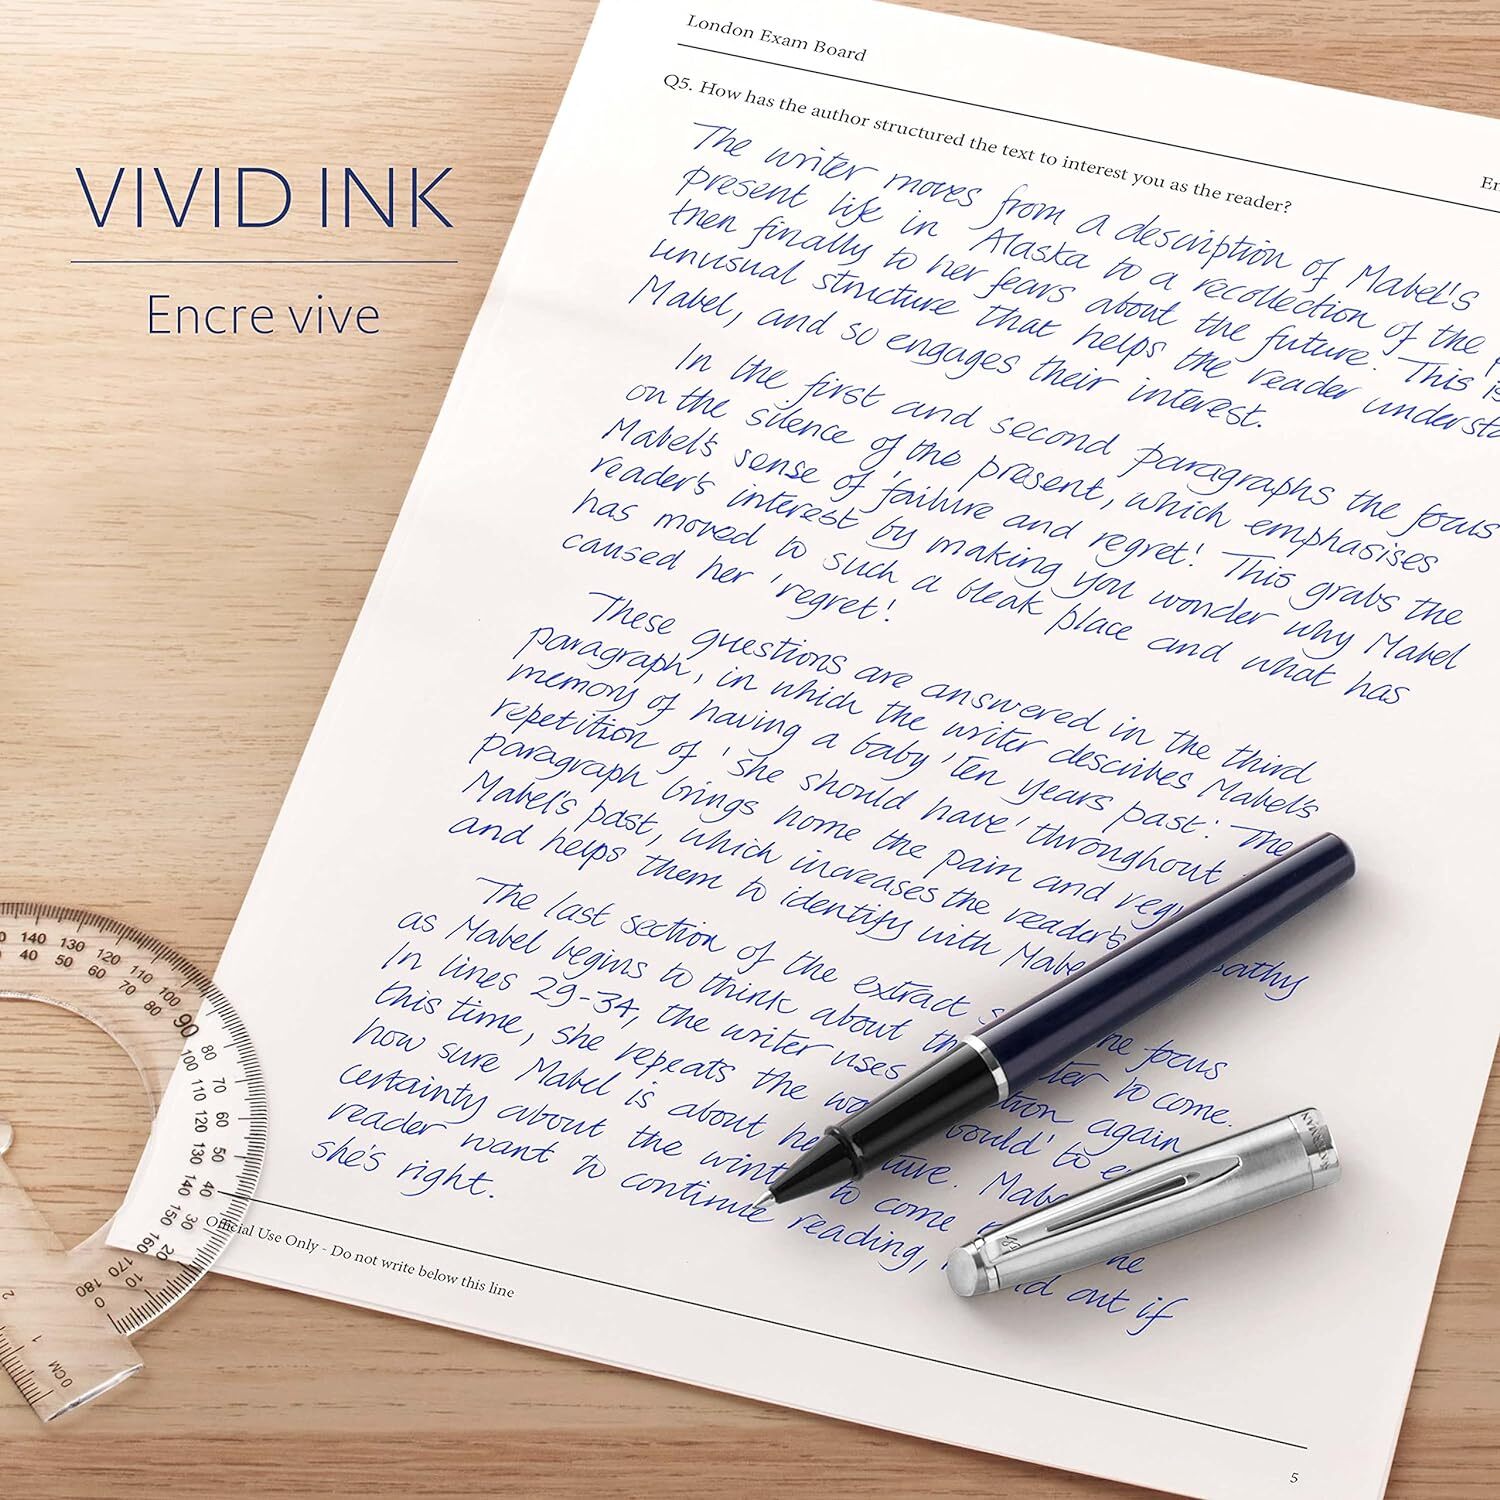 VIVID INK
Encre vive
London Exam Board
Q5. How has the author structured the text to interest you as the reader?
The writer moves from a description of Mabel's
present life in Alaska to a recollection of the
then finally to her fears about the future. This is
unusual structure that helps the reader
Mabel, and so engages their interest.
In the first and second paragraphs the focus
on the silence of the present, which emphasises
Mabel's sense of 'failure and regret'. This grabs the
reader's interest by making you wonder why Mabel
has moved to such a bleak place and what has
caused her 'regret'.
These questions are answered in the third
paragraph, in which the writer describes Mabel's
memory of having a baby 'ten years past'. The
repetition of 'she should have' throughout
paragraph brings home the pain and
Mabel's past, which increases the reader's
and helps them to identify with
The last section of the extract the focus
as Mabel begins to think about to come.
In lines 29-34, the writer uses again
this time, she repeats the to
how sure Mabel is about
certainty about the to come
reader want to continue reading, out if
she's right.
Official Use Only - Do not write below this line
5
140 130 120 110 100 90 80 70 60 50 40 30 20 10 0
40 50 60 70 80 100 110 120 130 140 150 160 170 180
0CM 1 2